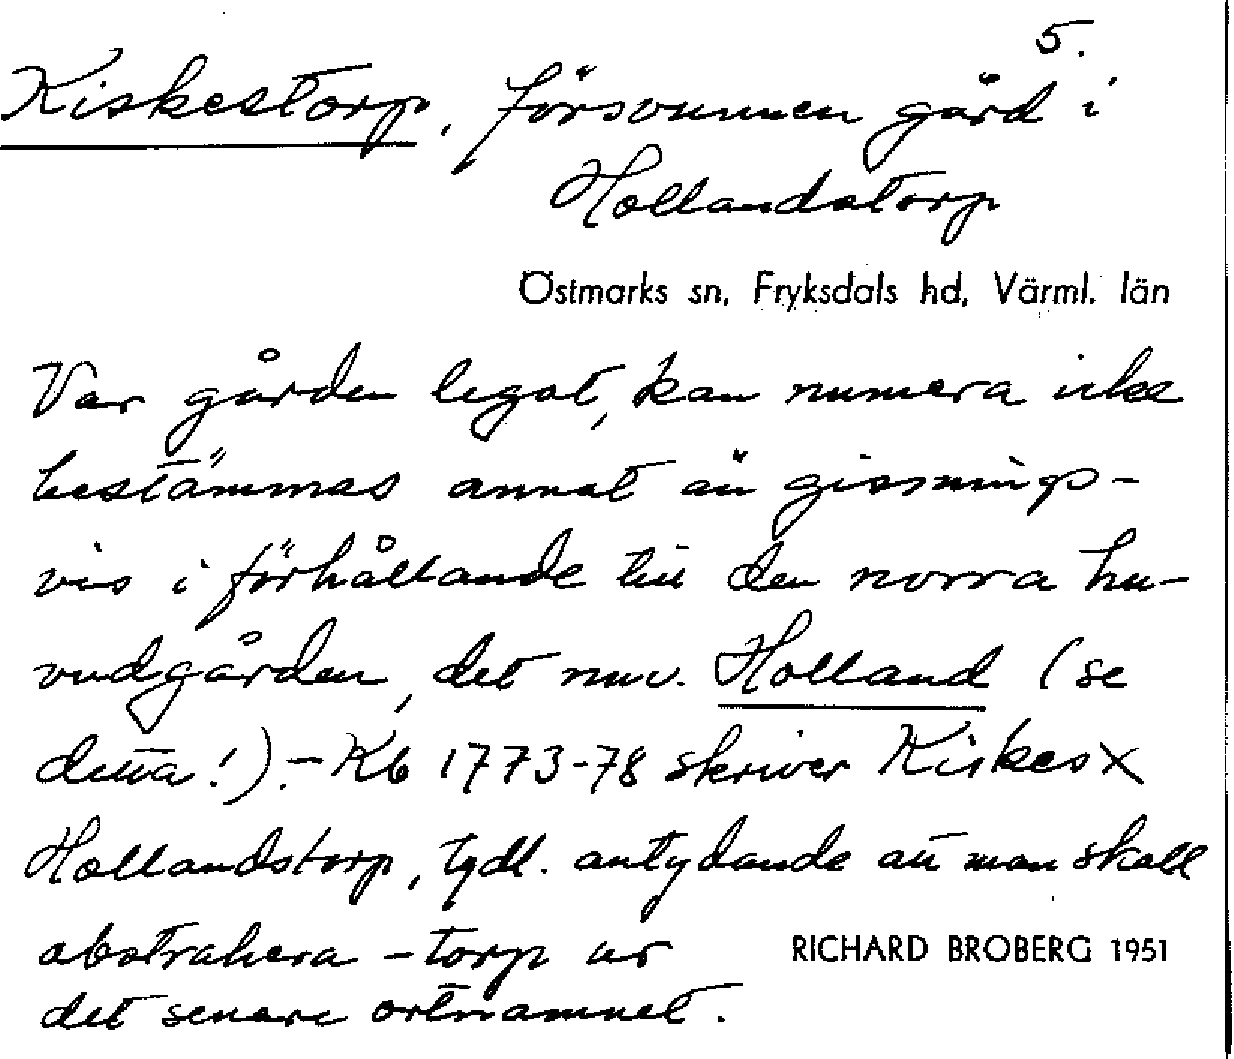 5.
Kiskestorp, försvunnen gård i
Hollandstorp
Östmarks sn, Fryksdals hd, Värml. län
Var gården legat, kan numera icke
bestämmas annat än gissnings-
vis i förhållande till den norra hu-
vudgården, det nuv. Holland (se
detta!). - Kb 1773-78 skriver Kiskes X
Hollandstorp, tydl. antydande att man skall
abstrahera -torp ur
det senare ortnamnet.
RICHARD BROBERG 1951